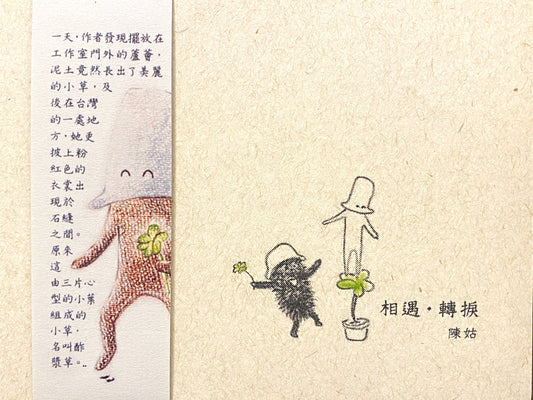 一天，作者發現擺放在
工作室門外的蘆薈，
泥土竟然長出了美麗
的小草，及
後在台灣
的一處地
方，她更
披上粉
紅色的
衣裳出
現於
石縫
之間。
原來
這
由三片心
型的小葉
組成的
小草，
名叫酢
漿草。..
相遇・轉捩
陳姑